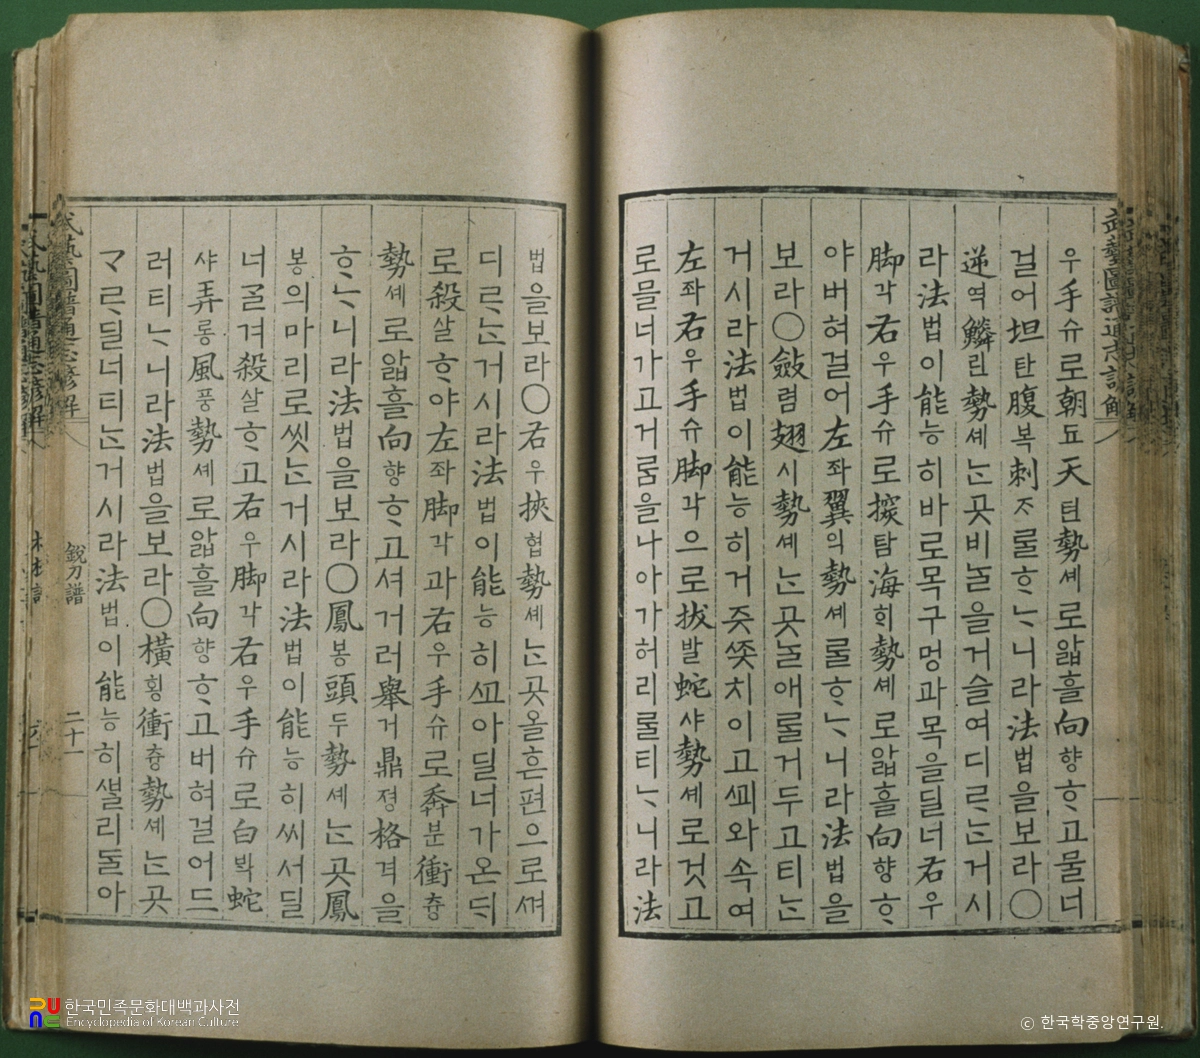 武藝圖譜通志諺解
우手슈로朝됴天텬勢셰로앏흘向향ᄒᆞ고물너
걸어坦탄腹복刺ᄌᆞ룰ᄒᆞᄂᆞ니라法법을보라〇
逆역鱗린勢셰ᄂᆞᆫ곳비놀을거슬여디ᄅᆞᄂᆞᆫ거시
라法법이能능히바로목구멍과목을딜너右우
脚각右우手슈로探탐海ᄒᆡ勢셰로앏흘向향ᄒᆞ
야버혀걸어左좌翼익勢셰룰ᄒᆞᄂᆞ니라法법을
보라〇斂렴翅시勢셰ᄂᆞᆫ곳놀애룰거두고티ᄂᆞᆫ
거시라法법이能능히거즛ᄶᅩᆺ치이고ᄭᅬ와속여
左좌右우手슈脚각으로拔발蛇샤勢셰로것고
로믈너가고거룸을나아가허리룰티ᄂᆞ니라法
법을보라〇右우挾협勢셰ᄂᆞᆫ곳올흔편으로ᄭᅧ
디ᄅᆞᄂᆞᆫ거시라法법이能능히ᄭᅬ아딜너가온ᄃᆡ
로殺살ᄒᆞ야左좌脚각과右우手슈로奔분衝츙
勢셰로앏흘向향ᄒᆞ고셔거러擧거鼎졍格격을
ᄒᆞᄂᆞ니라法법을보라〇鳳봉頭두勢셰ᄂᆞᆫ곳鳳
봉의마리로씻ᄂᆞᆫ거시라法법이能능히씨서딜
너굴겨殺살ᄒᆞ고右우脚각右우手슈로白ᄇᆡᆨ蛇
샤弄롱風풍勢셰로앏흘向향ᄒᆞ고버혀걸어드
러티ᄂᆞ니라法법을보라〇橫횡衝츙勢셰ᄂᆞᆫ곳
ᄀᆞᄅᆞ딜너티ᄂᆞᆫ거시라法법이能능히ᄲᆞᆯ리돌아
武藝圖譜通志諺解 銳刀譜 二十一
한국민족문화대백과사전
Encyclopedia of Korean Culture
© 한국학중앙연구원.